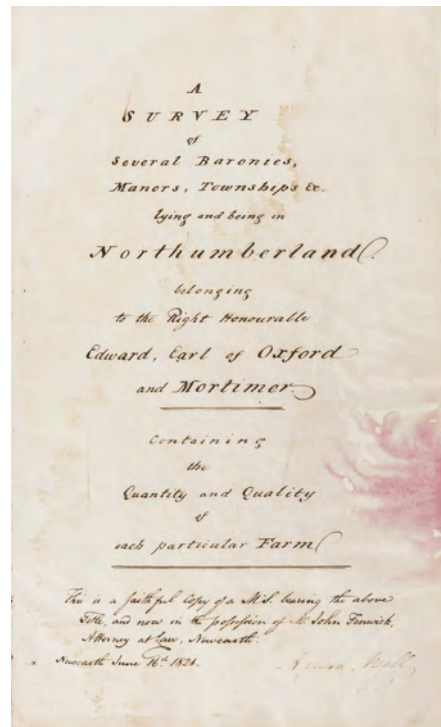 A
SURVEY
of
Several Baronies,
Manors, Townships &c.
lying and being in
Northumberland
belonging
to the Right Honourable
Edward, Earl of Oxford
and Mortimer
Containing
the
Quantity and Quality
of
each particular Farm
This is a faithful Copy of a M.S. bearing the above
Title, and now in the possession of Mr John Fenwick,
Attorney at Law, Newcastle.
Newcastle June 16th